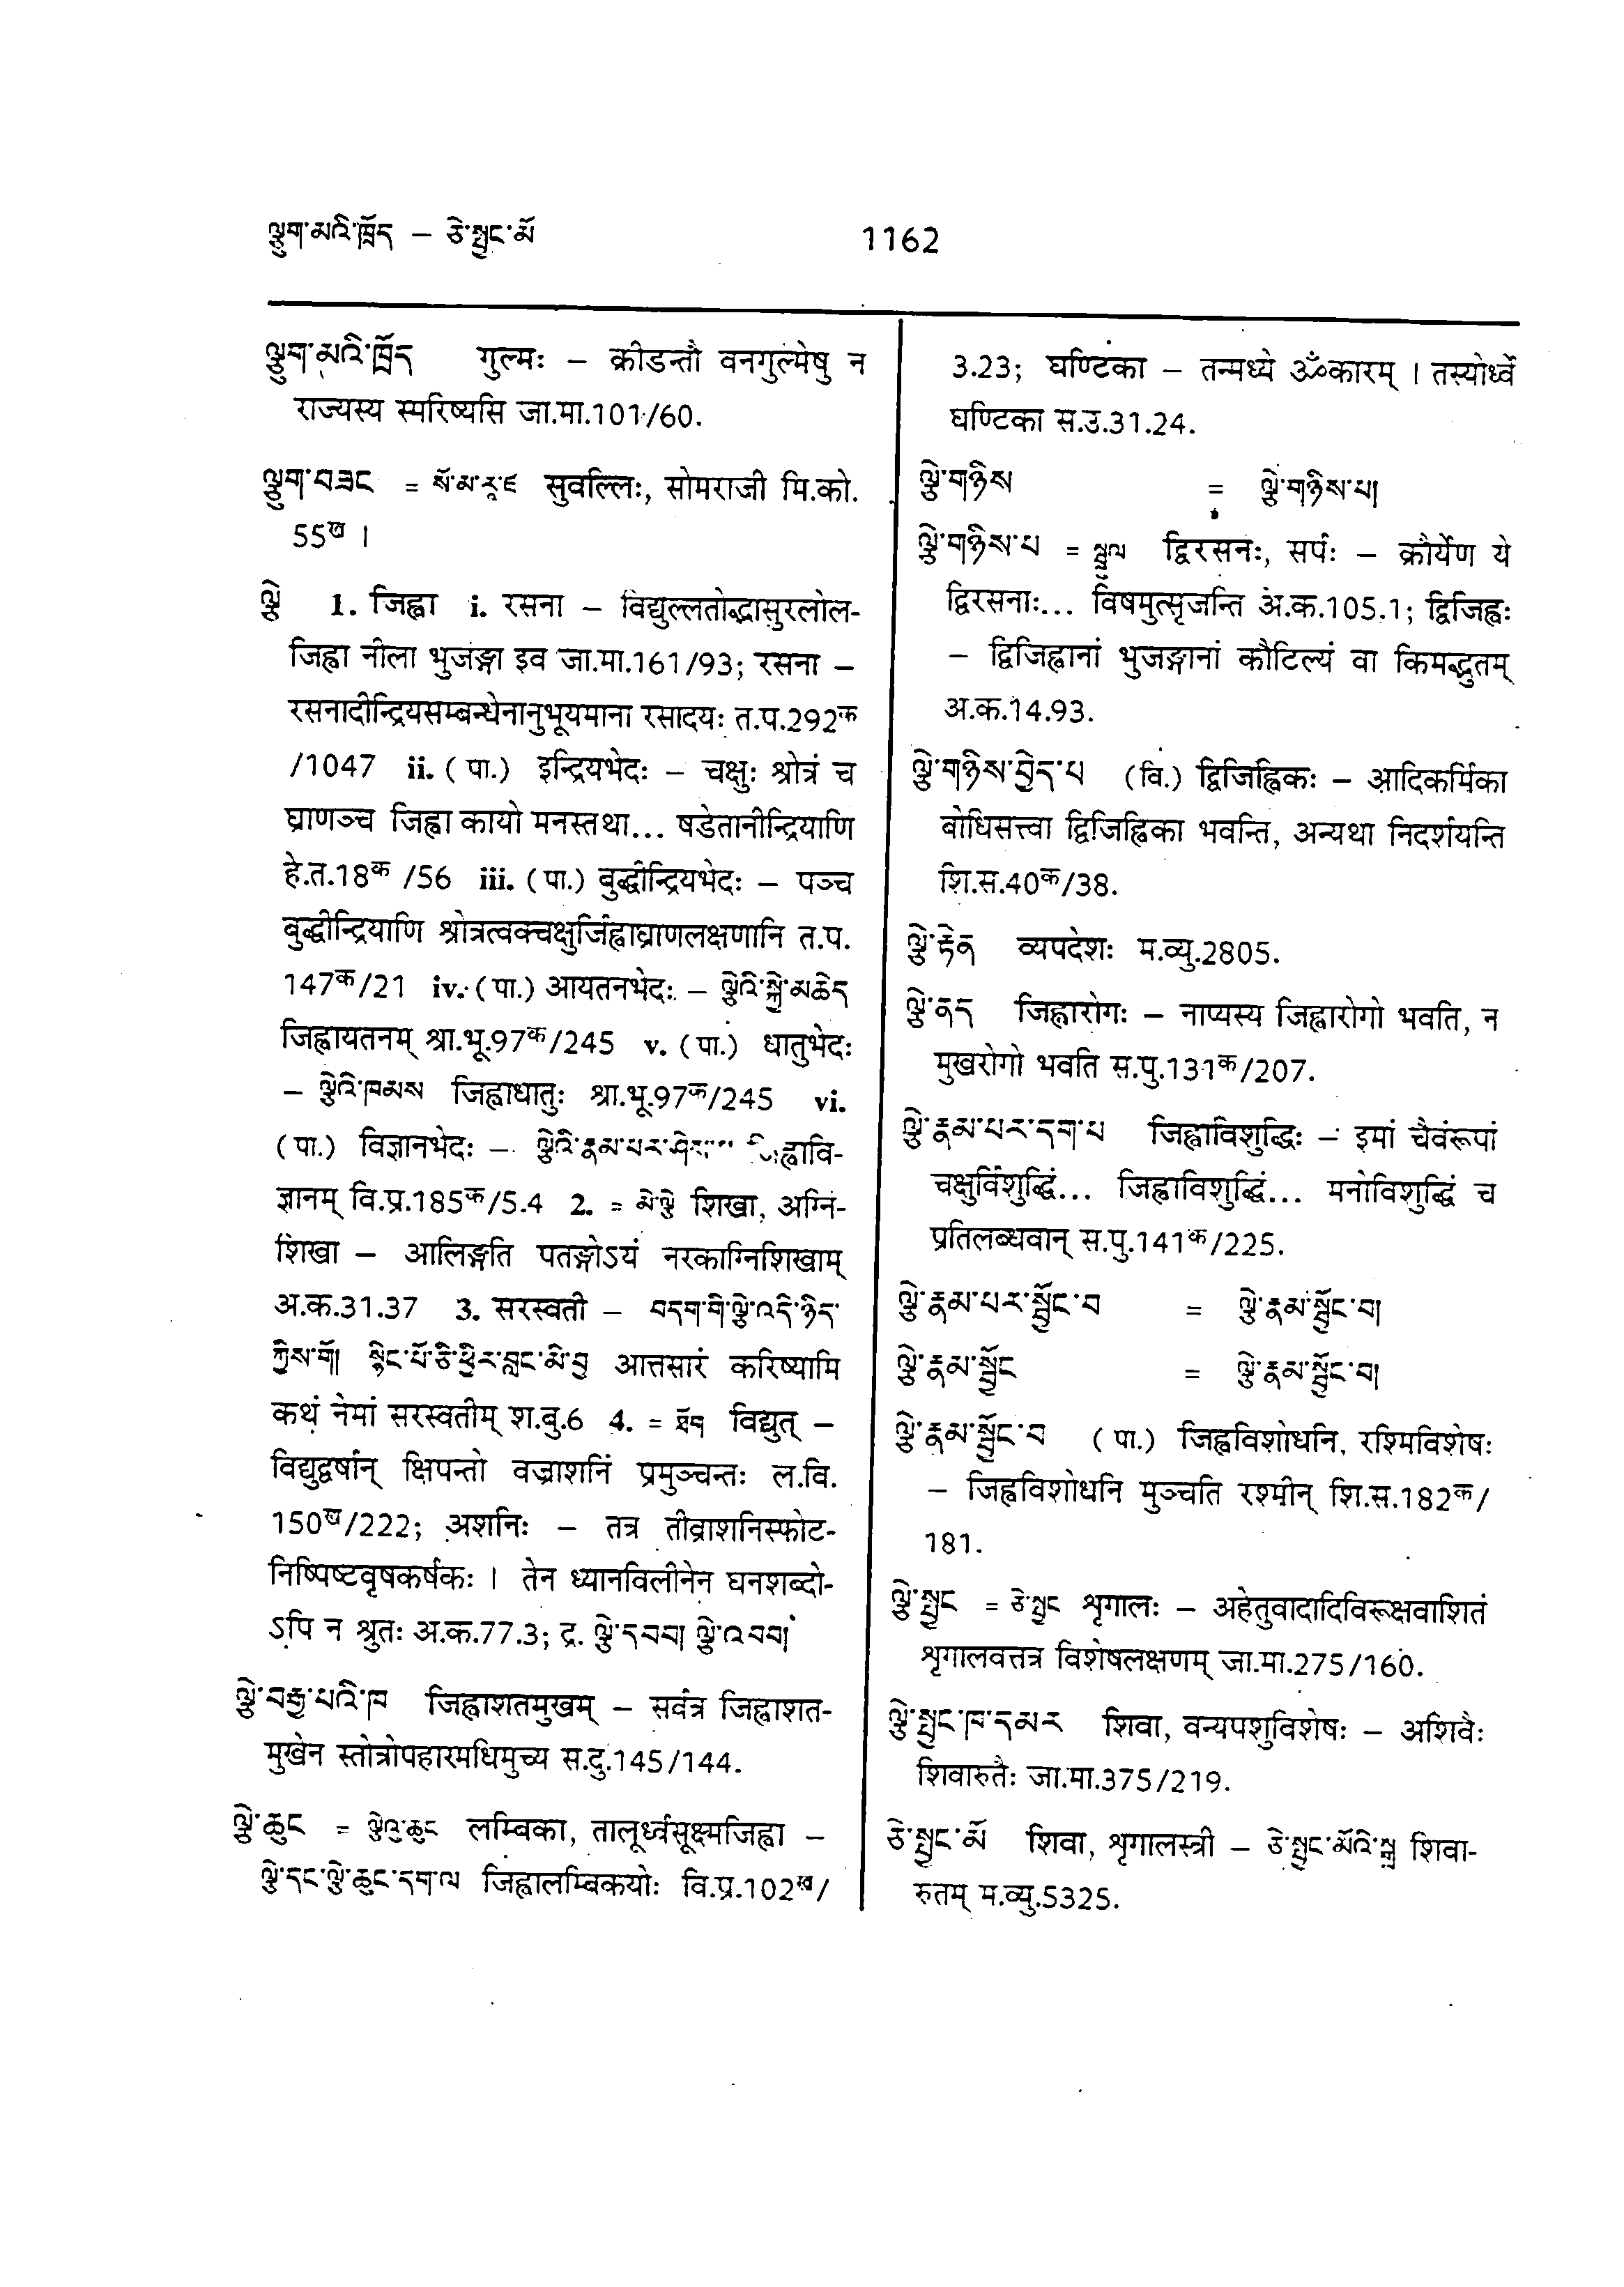 ལྕུག་མའི་ཁྲོད – ཅེ་སྤྱང་མོ 1162
ལྕུག་མའི་ཁྲོད गुल्मः – क्रीडन्तौ वनगुल्मेषु न
राज्यस्य स्मरिष्यसि जा.मा.101/60.
ལྕུག་བཟང = སོ་མ་རཱ་ཛ सुवल्लिः, सोमराजी मि.को.
55ख ।
ལྕེ 1. जिह्वा i. रसना – विद्युल्लतोद्भासुरलोल-
जिह्वा नीला भुजङ्गा इव जा.मा.161/93; रसना –
रसनादीन्द्रियसम्बन्धेनानुभूयमाना रसादयः त.प.292क
/1047 ii. (पा.) इन्द्रियभेदः – चक्षुः श्रोत्रं च
घ्राणञ्च जिह्वा कायो मनस्तथा... षडेतानीन्द्रियाणि
हे.त.18क /56 iii. (पा.) बुद्धीन्द्रियभेदः – पञ्च
बुद्धीन्द्रियाणि श्रोत्रत्वक्चक्षुर्जिह्वाघ्राणलक्षणानि त.प.
147क/21 iv. (पा.) आयतनभेदः – ལྕེའི་སྐྱེ་མཆེད
जिह्वायतनम् श्रा.भू.97क/245 v. (पा.) धातुभेदः
– ལྕེའི་ཁམས जिह्वाधातुः श्रा.भू.97क/245 vi.
(पा.) विज्ञानभेदः – ལྕེའི་རྣམ་པར་ जिह्वावि-
ज्ञानम् वि.प्र.185क/5.4 2. = མེ་ལྕེ शिखा, अग्नि-
शिखा – आलिङ्गति पतङ्गोऽयं नरकाग्निशिखाम्
अ.क.31.37 3. सरस्वती – བདག་གི་ལྕེ་འདི་ཉིད་
ཀྱིས་གོ། སྙིང་པོ་ཅི་ཕྱིར་བླང་མི་བྱ आत्तसारं करिष्यामि
कथं नेमां सरस्वतीम् श.बु.6 4. = ཐོག विद्युत् –
विद्युद्वर्षान् क्षिपन्तो वज्राशनिं प्रमुञ्चन्तः ल.वि.
150ख/222; अशनिः – तत्र तीव्राशनिस्फोट-
निष्पिष्टवृषकर्षकः । तेन ध्यानविलीनेन घनशब्दो-
ऽपि न श्रुतः अ.क.77.3; द्र. ལྕེ་དབབ། ལྕེ་འབབ།
ལྕེ་བརྒྱ་པའི་ཁ जिह्वाशतमुखम् – सर्वत्र जिह्वाशत-
मुखेन स्तोत्रोपहारमधिमुच्य स.दु.145/144.
ལྕེ་ཆུང = ལྕེའུ་ཆུང लम्बिका, तालूर्ध्वसूक्ष्मजिह्वा –
ལྕེ་དང་ལྕེ་ཆུང་དག་ལ जिह्वालम्बिकयोः वि.प्र.102ख/
3.23; घण्टिका – तन्मध्ये ॐकारम् । तस्योर्ध्वे
घण्टिका स.उ.31.24.
ལྕེ་གཉིས = ལྕེ་གཉིས་པ།
ལྕེ་གཉིས་པ = སྦྲུལ द्विरसनः, सर्पः – क्रौर्येण ये
द्विरसनाः... विषमुत्सृजन्ति अ.क.105.1; द्विजिह्वः
– द्विजिह्वानां भुजङ्गानां कौटिल्यं वा किमद्भुतम्
अ.क.14.93.
ལྕེ་གཉིས་བྱེད་པ (वि.) द्विजिह्विकः – आदिकर्मिका
बोधिसत्त्वा द्विजिह्विका भवन्ति, अन्यथा निदर्शयन्ति
शि.स.40क/38.
ལྕེ་རྟེན व्यपदेशः म.व्यु.2805.
ལྕེ་ནད जिह्वारोगः – नाप्यस्य जिह्वारोगो भवति, न
मुखरोगो भवति स.पु.131क/207.
ལྕེ་རྣམ་པར་དག་པ जिह्वाविशुद्धिः – इमां चैवंरूपां
चक्षुर्विशुद्धिं... जिह्वाविशुद्धिं... मनोविशुद्धिं च
प्रतिलब्धवान् स.पु.141क/225.
ལྕེ་རྣམ་པར་སྦྱོང་བ = ལྕེ་རྣམ་སྦྱོང་བ།
ལྕེ་རྣམ་སྦྱོང = ལྕེ་རྣམ་སྦྱོང་བ།
ལྕེ་རྣམ་སྦྱོང་བ (पा.) जिह्वविशोधनि, रश्मिविशेषः
– जिह्वविशोधनि मुञ्चति रश्मीन् शि.स.182क/
181.
ལྕེ་སྤྱང = ཅེ་སྤྱང शृगालः – अहेतुवादादिविरूक्षवाशितं
शृगालवत्तत्र विशेषलक्षणम् जा.मा.275/160.
ལྕེ་སྤྱང་ཁ་དམར शिवा, वन्यपशुविशेषः – अशिवैः
शिवारुतैः जा.मा.375/219.
ཅེ་སྤྱང་མོ शिवा, शृगालस्त्री – ཅེ་སྤྱང་མོའི་སྒྲ शिवा-
रुतम् म.व्यु.5325.